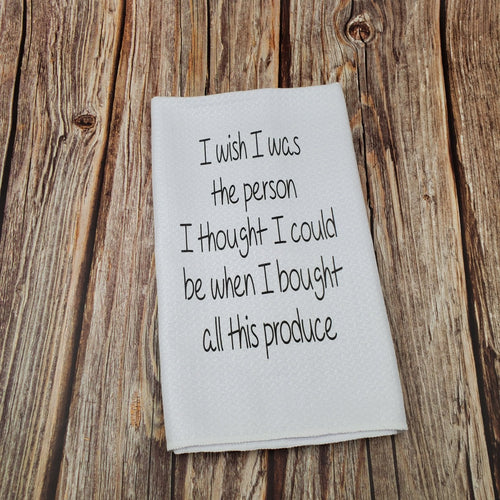 I wish I was
the person
I thought I could
be when I bought
all this produce